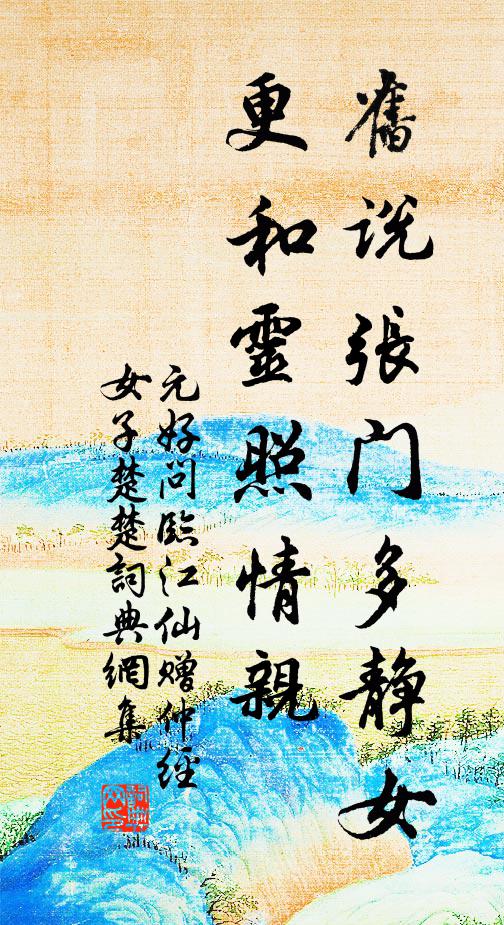 舊説張門多静女
更和靈照情親
元好问臨江仙赠仲經
女子楚楚詞典網集